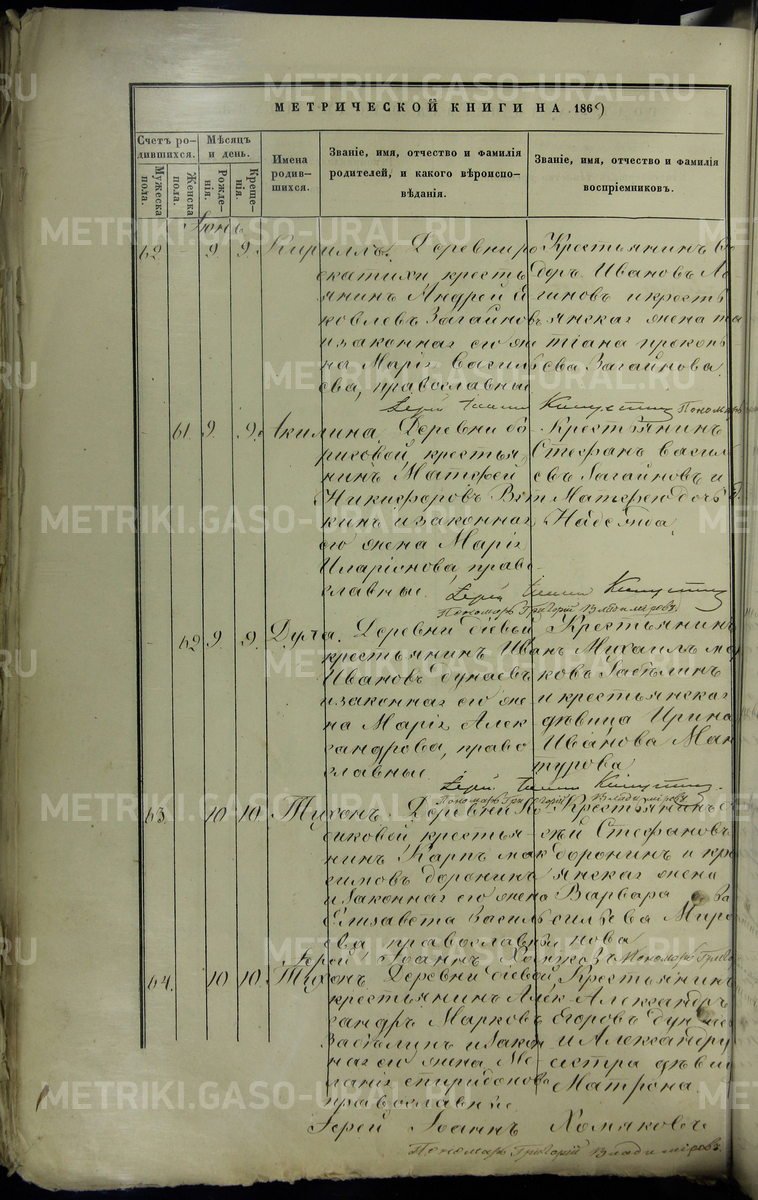 METRIKI.GASO-URAL.RU
МЕТРИЧЕСКОЙ КНИГИ НА 1869
Счетъ родившихся.
Мужеска пола.
Женска пола.
Мѣсяцъ и день.
Рожденія.
Крещенія.
Имена родившихся.
Званіе, имя, отчество и фамилія родителей, и какого вѣроисповѣданія.
Званіе, имя, отчество и фамилія воспріемниковъ.
Іюнь
62 9. 9. Кириллъ.
Деревни
скатихи кресть
янинъ Андрей Я
ковлевъ Загайновъ
и законная его же
на Марія Василь
ева, православныи
Крестьянинъ Ѳе
доръ Ивановъ Ло
гиновъ и кресть
янская жена та
тіана прокопь
ева Загайнова.
Іерей Капустин Пономарь
61. 9. 9. Акилина.
Деревни бо
рисовой, крестья
нинъ Матѳей
Никифоровъ Вят
кинъ и законная
его жена Марія
Иларіонова, право
славныи.
Крестьянинъ
Стефанъ васил
евъ Загайновъ и
Матѳея дочь
Надежда.
Іерей Капустин
Пономарь Григорій Владиміровъ.
62 9. 9. Дула.
Деревни біевой
крестьянинъ Иванъ
Ивановъ дунаевъ
и законная его же
на Марія Алек
сандрова, право
славныи
Крестьянинъ
Михаилъ мар
ковъ Забѣлинъ
и крестьянская
дѣвица Ирина
Иванова Ман
турова
Іерей Капустин.
Пономарь Григорій Владиміровъ
63. 10 10. Тихонъ.
Деревни Ко
диковой крестья
нинъ Карпъ мак
симовъ доронинъ
и законная его жена
Елизавета Василь
ева православныи
Крестьянинъ
Стефановъ
доронинъ и кре
янская жена
Варвара Ва
сильева Миро
нова
Іерей Іоаннъ Хомяковъ Пономарь Григо
64. 10 10. Тихон.
Деревни біевой,
крестьянинъ Алек
сандръ Марковъ
Забѣлинъ и закон
ная его жена Ме
ланія спиридонова
православныи
Крестьянинъ
Александръ
Егоровъ дунаевъ
и Александру
сестра дѣвиц
Матрона.
Іерей Іоаннъ Хомяковъ
Пономарь Григорій Владиміровъ.